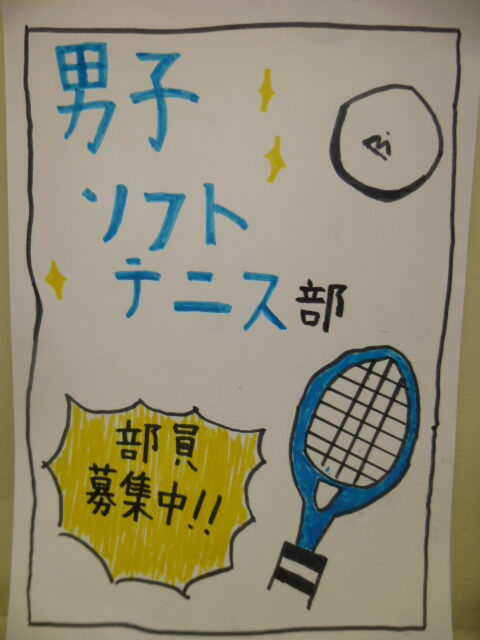 男子
ソフト
テニス部
部員
募集中!!